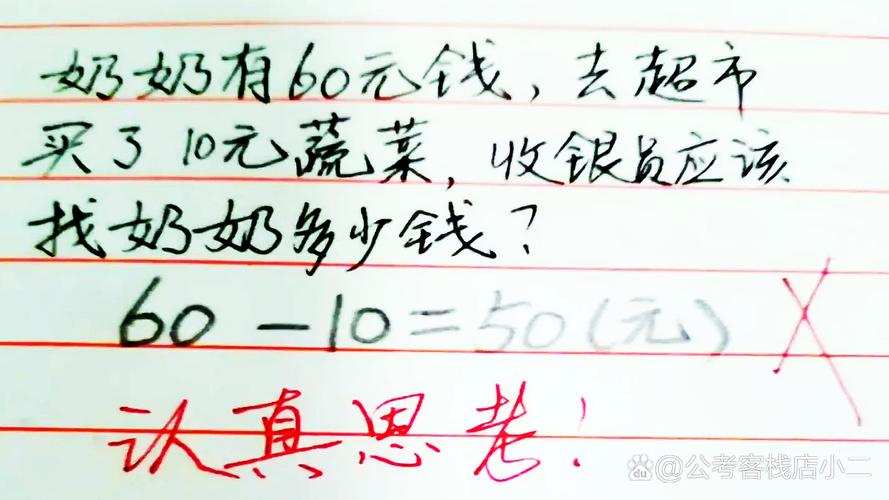 奶奶有60元钱，去超市
买了10元蔬菜，收银员应该
找奶奶多少钱？
60-10=50(元)
认真思考！
@公考客栈店小二